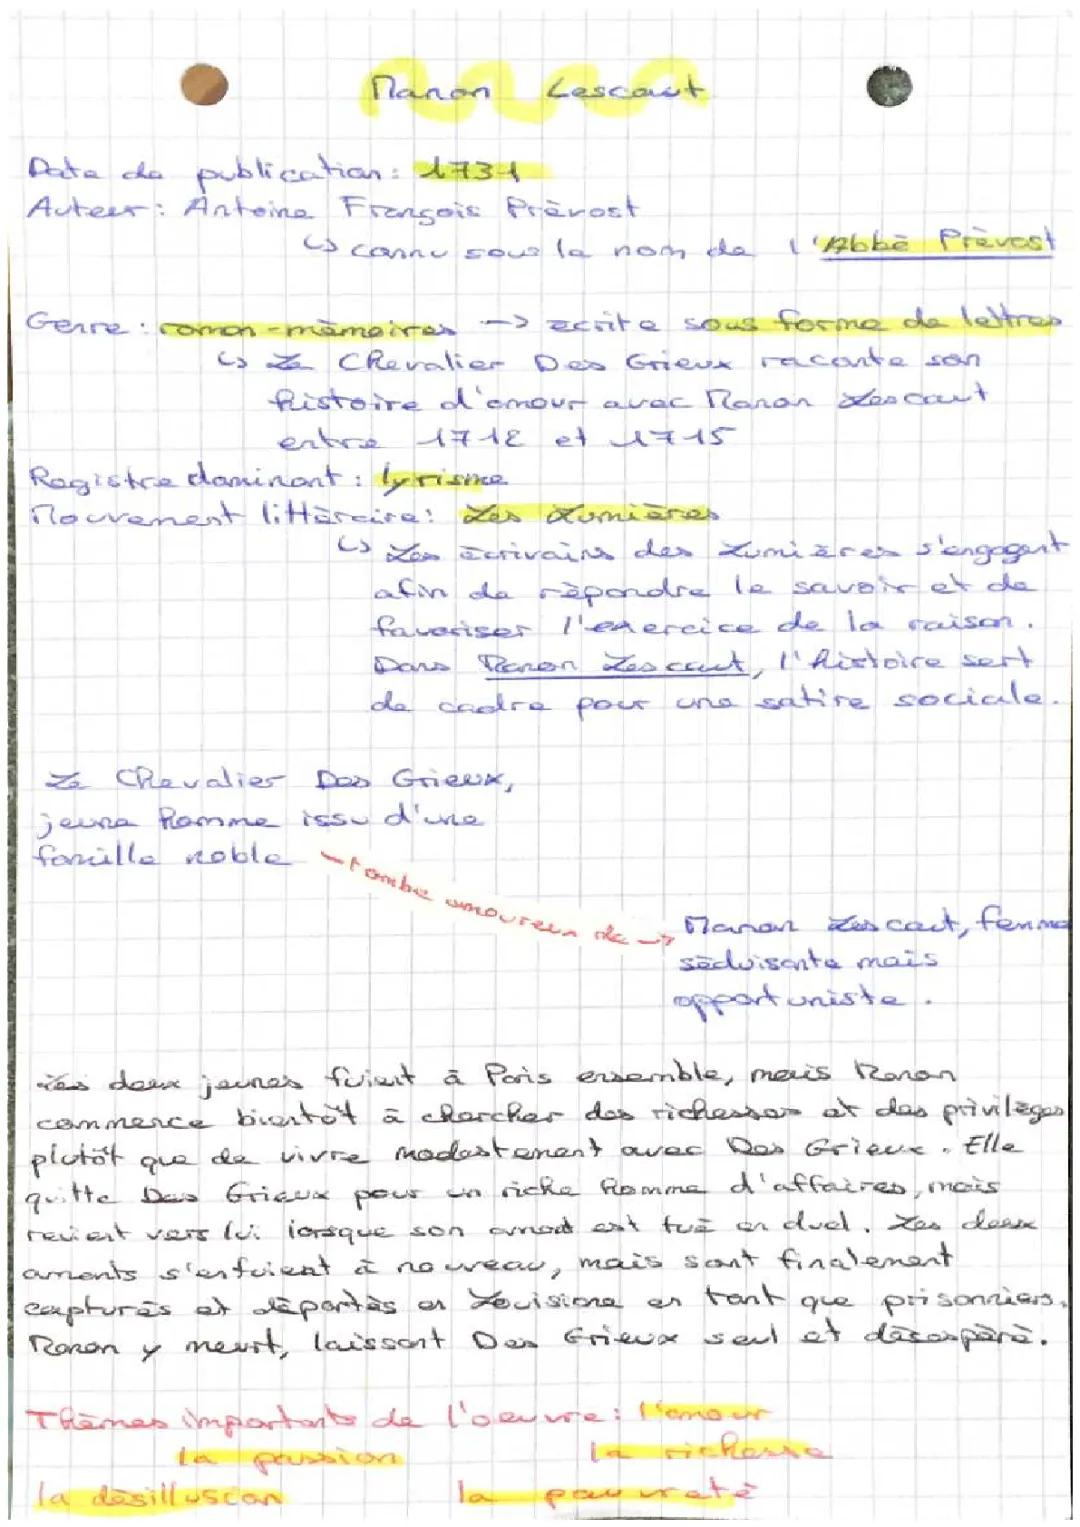 Manon Lescaut
Date de publication : 1731
Auteur : Antoine François Prévost
↳ connu sous le nom de l'Abbé Prévost
Genre : roman-mémoires → écrite sous forme de lettres
↳ Le Chevalier Des Grieux raconte son
histoire d'amour avec Manon Lescaut
entre 1712 et 1715
Registre dominant : lyrisme
Mouvement littéraire : Les Lumières
↳ Les écrivains des Lumières s'engagent
afin de répandre le savoir et de
favoriser l'exercice de la raison.
Dans Manon Lescaut, l'histoire sert
de cadre pour une satire sociale.
Le Chevalier Des Grieux,
jeune homme issu d'une
famille noble
→ tombe amoureux de →
Manon Lescaut, femme
séduisante mais
opportuniste.
Les deux jeunes fuient à Paris ensemble, mais Manon
commence bientôt à chercher des richesses et des privilèges
plutôt que de vivre modestement avec Des Grieux. Elle
quitte Des Grieux pour un riche homme d'affaires, mais
revient vers lui lorsque son amant est tué en duel. Les deux
amants s'enfuient à nouveau, mais sont finalement
capturés et déportés en Louisiane en tant que prisonniers.
Manon y meurt, laissant Des Grieux seul et désespéré.
Thèmes importants de l'oeuvre : l'amour
la passion la richesse
la désilluscion la pauvreté